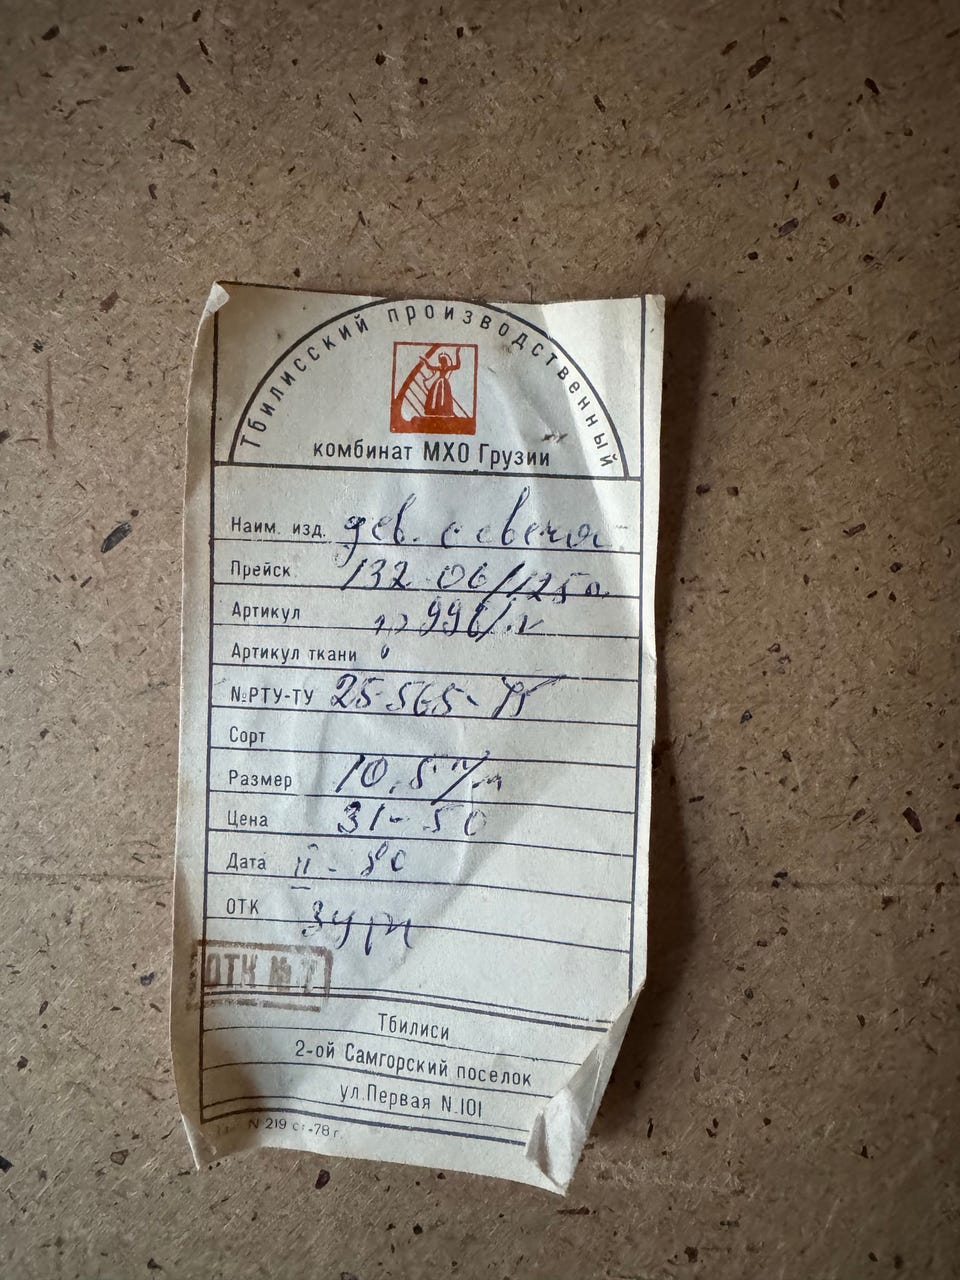 Тбилисский производственный
комбинат МХО Грузии
Наим. изд. дев. с свечой
Прейск. 132-06/125а
Артикул 996/
Артикул ткани
№РТУ-ТУ 25-565-75
Сорт
Размер 10,5
Цена 31-50
Дата II-80
ОТК
ОТК № 7
Тбилиси
2-ой Самгорский поселок
ул.Первая N.101
N 219 -78 г.